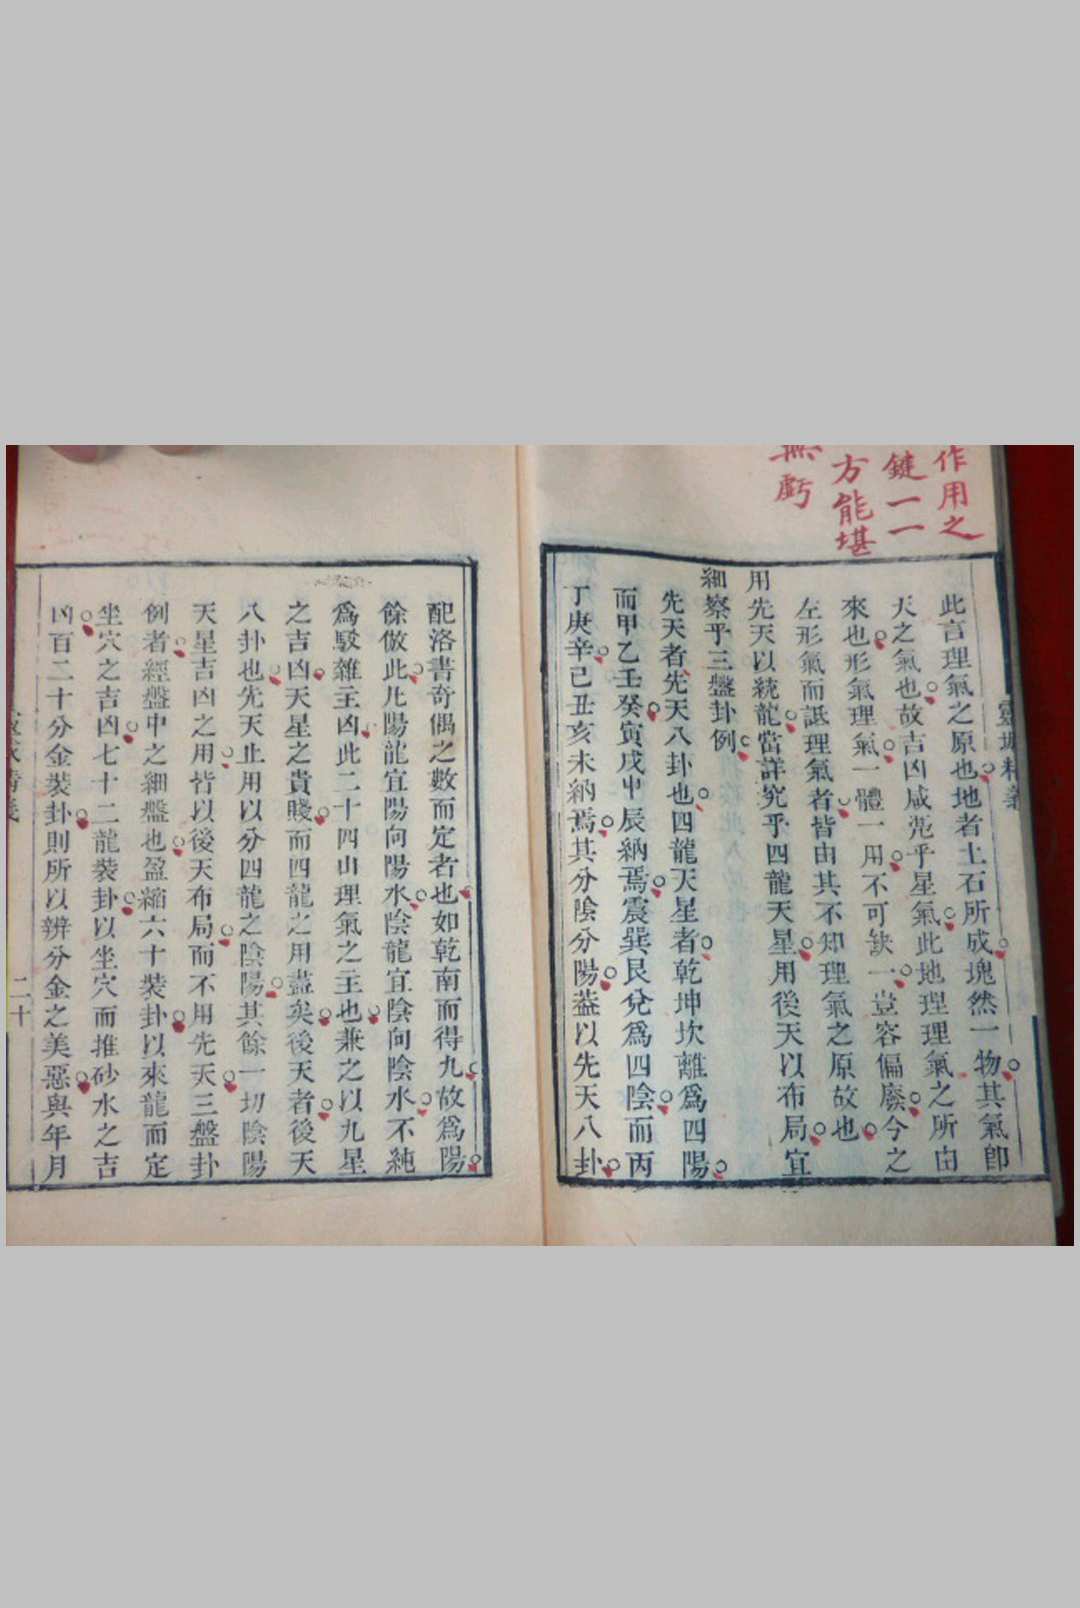 作用之
鍵一一
方能堪
無虧
此言理氣之原也地者土石所成塊然一物其氣卽
天之氣也故吉凶咸兆乎星氣此地理理氣之所由
來也形氣理氣一體一用不可缺一豈容偏廢今之
左形氣而詆理氣者皆由其不知理氣之原故也
用先天以統龍當詳究乎四龍天星用後天以布局宜
細察乎三盤卦例
先天者先天八卦也四龍天星者乾坤坎離爲四陽
而甲乙壬癸寅戌申辰納焉震巽艮兌爲四陰而丙
丁庚辛巳丑亥未納焉其分陰分陽葢以先天八卦
配洛書奇偶之數而定者也如乾南而得九故爲陽
餘倣此凡陽龍宜陽向陽水陰龍宜陰向陰水不純
爲駁雜主凶此二十四山理氣之主也兼之以九星
之吉凶天星之貴賤而四龍之用盡矣後天者後天
八卦也先天止用以分四龍之陰陽其餘一切陰陽
天星吉凶之用皆以後天布局而不用先天三盤卦
例者經盤中之細盤也盈縮六十裝卦以來龍而定
坐穴之吉凶七十二龍裝卦以坐穴而推砂水之吉
凶百二十分金裝卦則所以辨分金之美惡與年月
二十